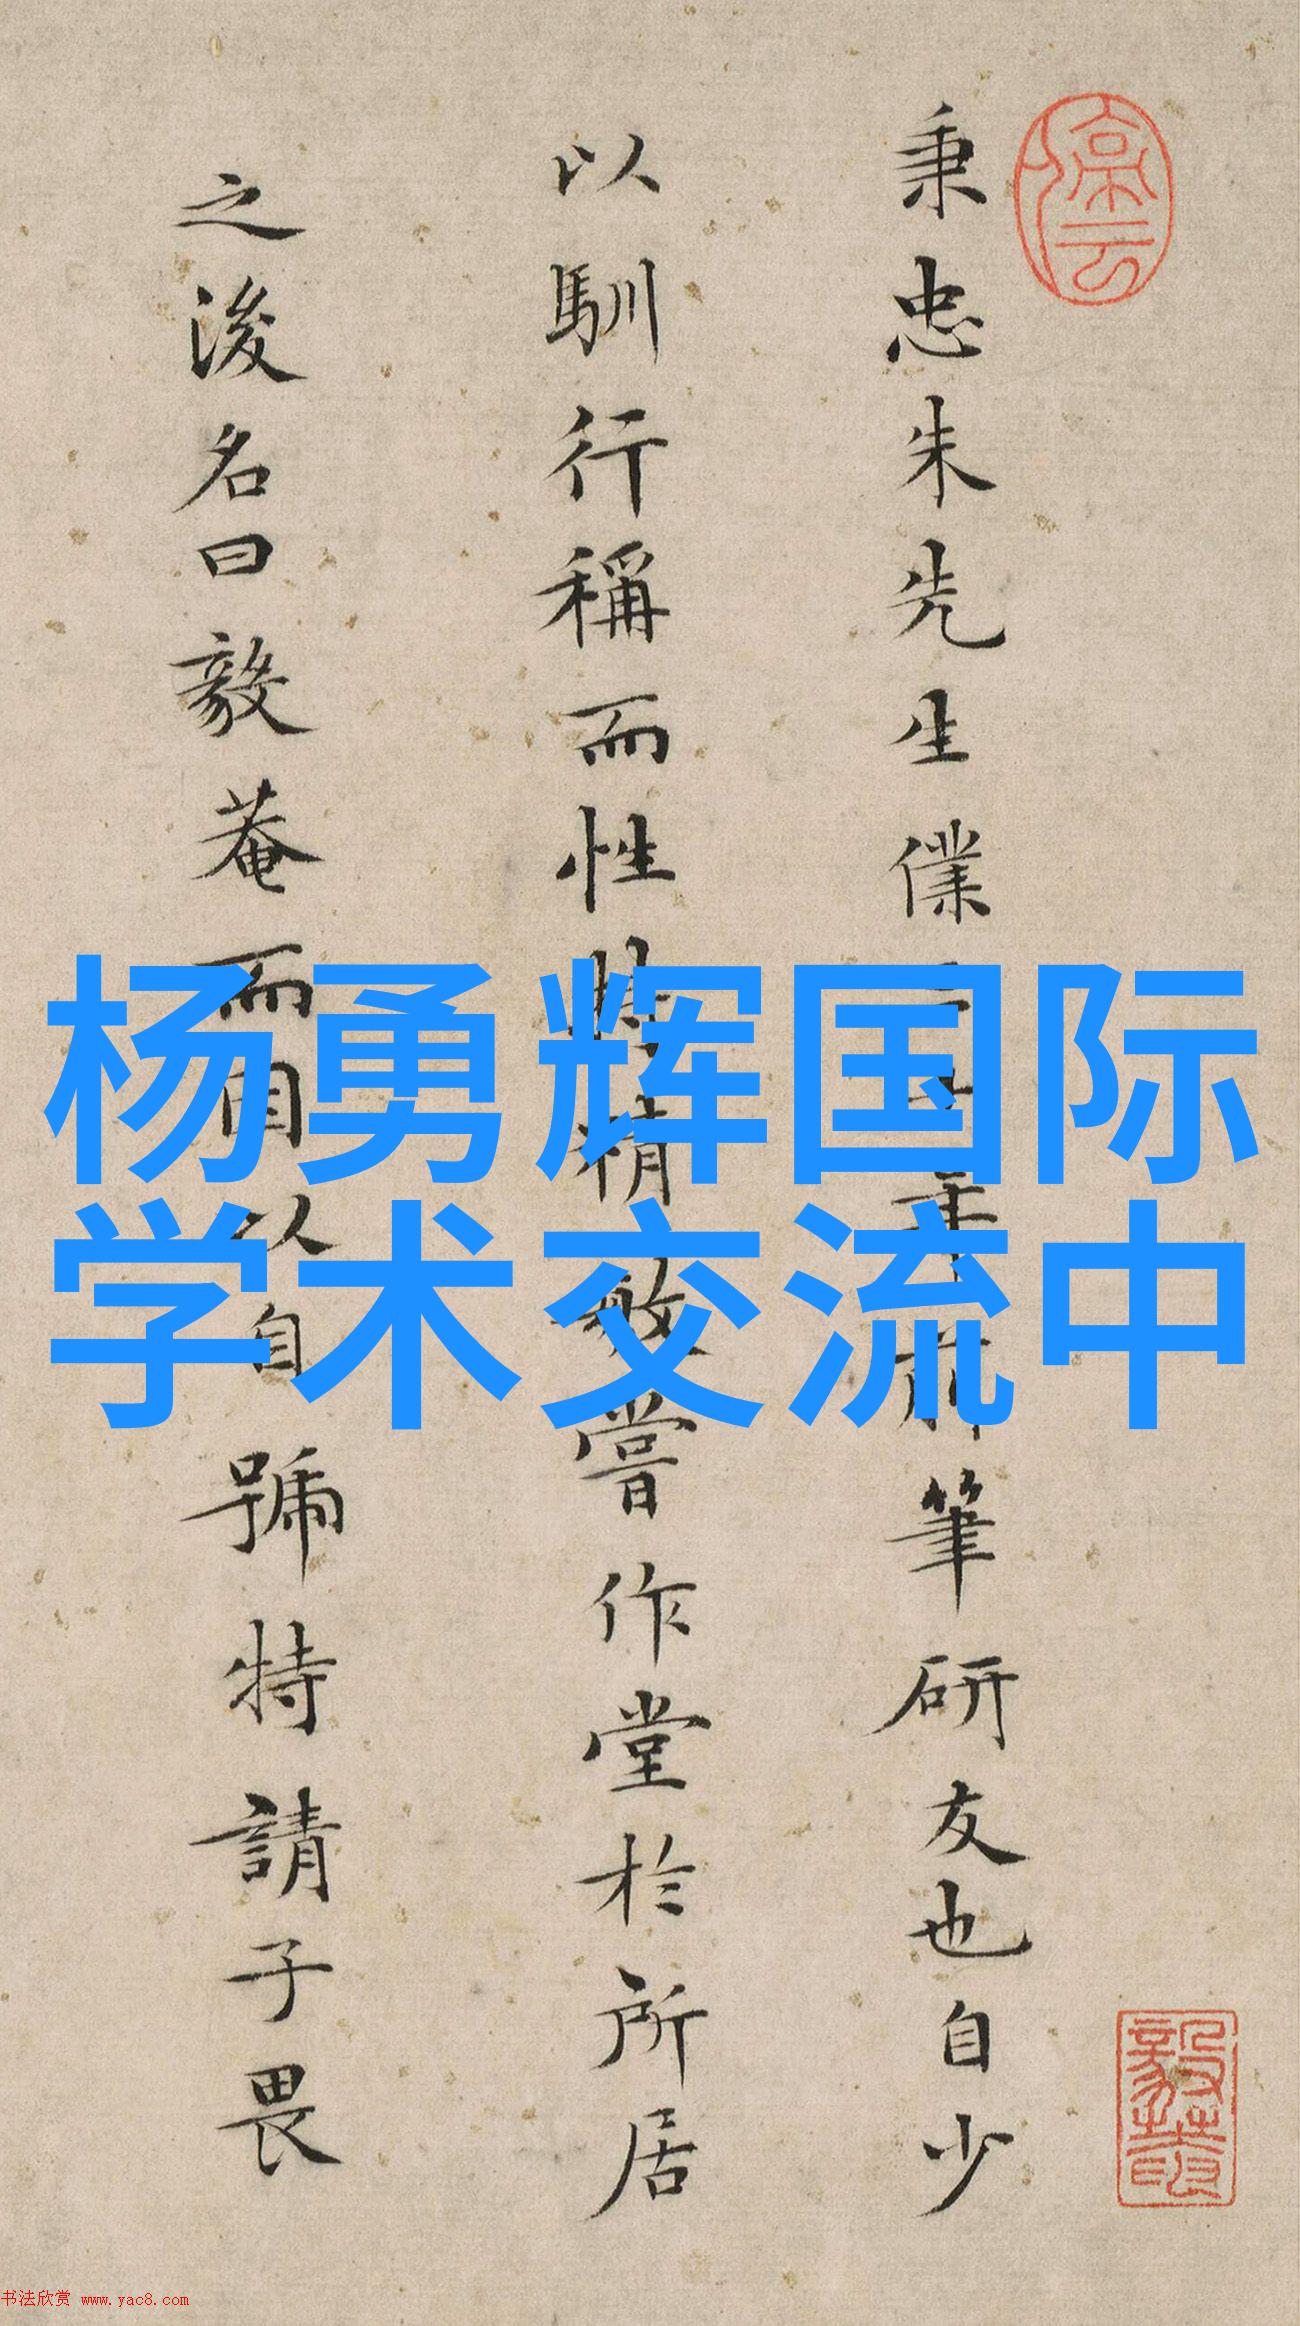 秉忠朱先生僕年前筆研友也自少
以馴行稱而性特精敏嘗作堂於所居
之後名曰毅菴而因以自號特請子畏
杨勇辉国际
学术交流中
书法欣赏 www.yac8.com